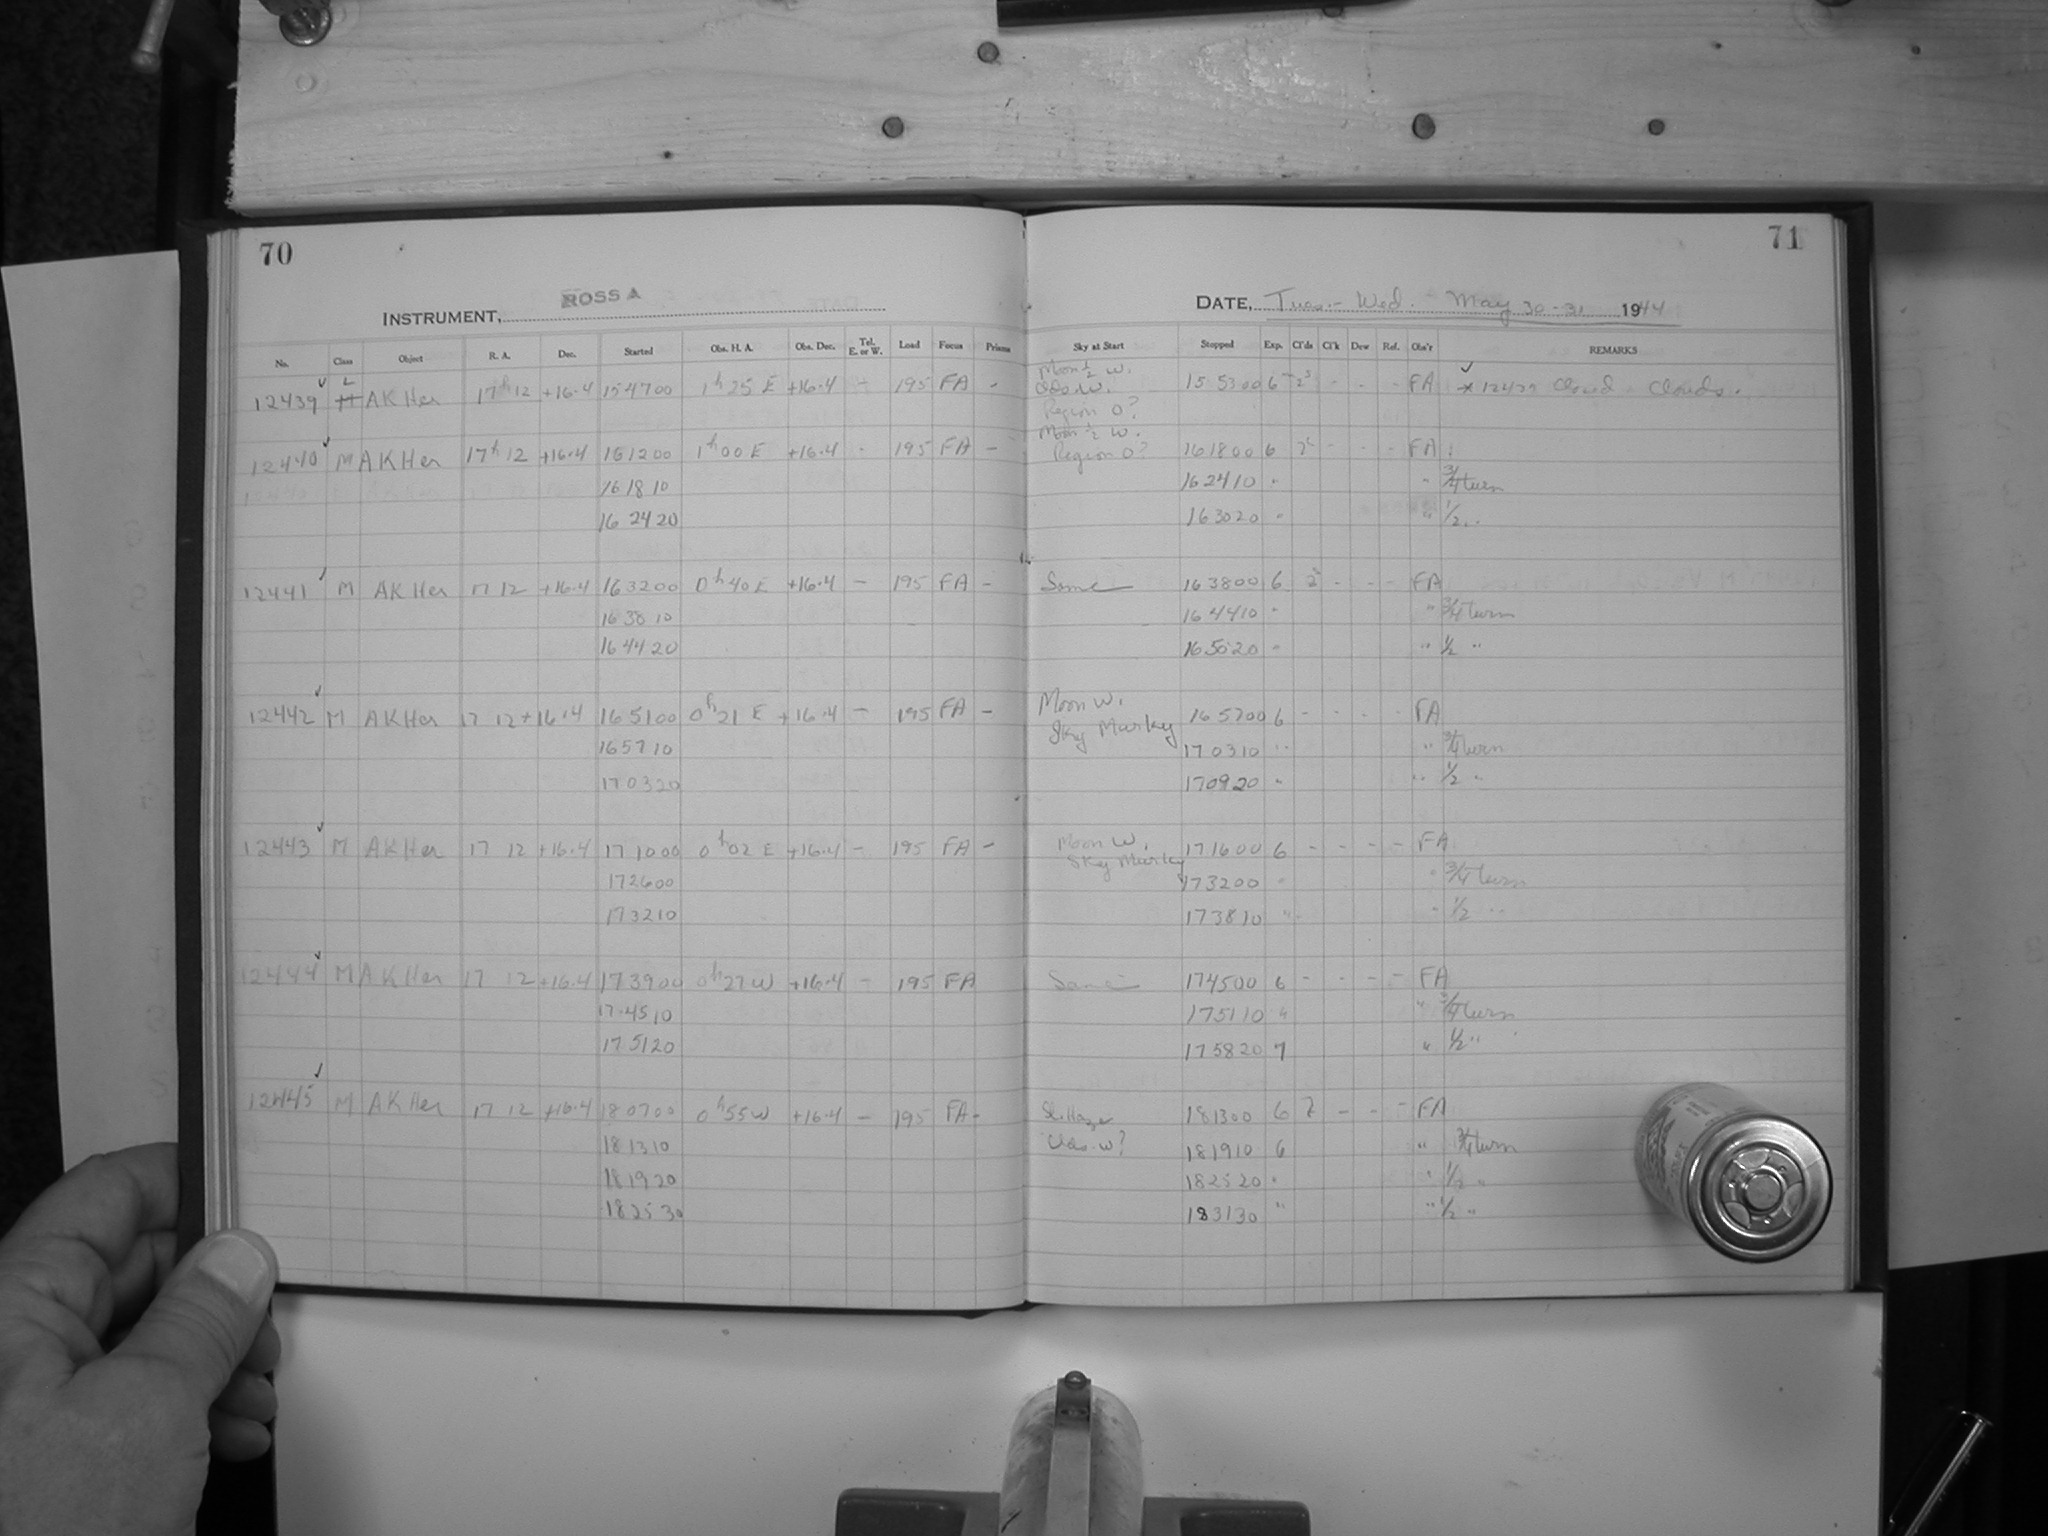 70
71
INSTRUMENT, ROSS A
DATE, Tues.- Wed. - May 30-31 1944
No. Class Object R. A. Dec. Started Obs. H. A. Obs. Dec. Tel. E. or W. Load Focus Prisms Sky at Start Stopped Exp. Cl'ds Cl'k Dew Ref. Obs'r REMARKS
Moon ½ W.
12439 L AK Her 17h 12 +16.4 154700 1h 25 E +16.4 - 195 FA - Clds. W. 155300 6 - - - FA * 12439 Closed - Clouds.
Region O?
Moon ½ W.
12440 M AK Her 17h 12 +16.4 161200 1h 00 E +16.4 - 195 FA - Region O? 161800 6 - - - FA
161810 162410 " " 3/4 turn
162420 163020 " " 1/2 "
12441 M AK Her 17 12 +16.4 163200 0h 40 E +16.4 - 195 FA - Same 163800 6 - - - FA
163810 164410 " " 3/4 turn
164420 165020 " " 1/2 "
12442 M AK Her 17 12 +16.4 165100 0h 21 E +16.4 - 195 FA - Moon W. 165700 6 - - - - FA
165710 Sky Murky 170310 " " 3/4 turn
170320 170920 " " 1/2 "
12443 M AK Her 17 12 +16.4 171000 0h 02 E +16.4 - 195 FA - Moon W. 171600 6 - - - - FA
172600 Sky Murky 173200 " " 3/4 turn
173210 173810 " " 1/2 "
12444 M AK Her 17 12 +16.4 173900 0h 27 W +16.4 - 195 FA Same 174500 6 - - - - FA
174510 175110 " " 3/4 turn
175120 175820 7 " 1/2 "
12445 M AK Her 17 12 +16.4 180700 0h 55 W +16.4 - 195 FA - Sl. Haze 181300 6 ? - - - FA
181310 Clds. W? 181910 6 " 3/4 turn
181920 182520 " " 1/2 "
182530 183130 " " 1/2 "